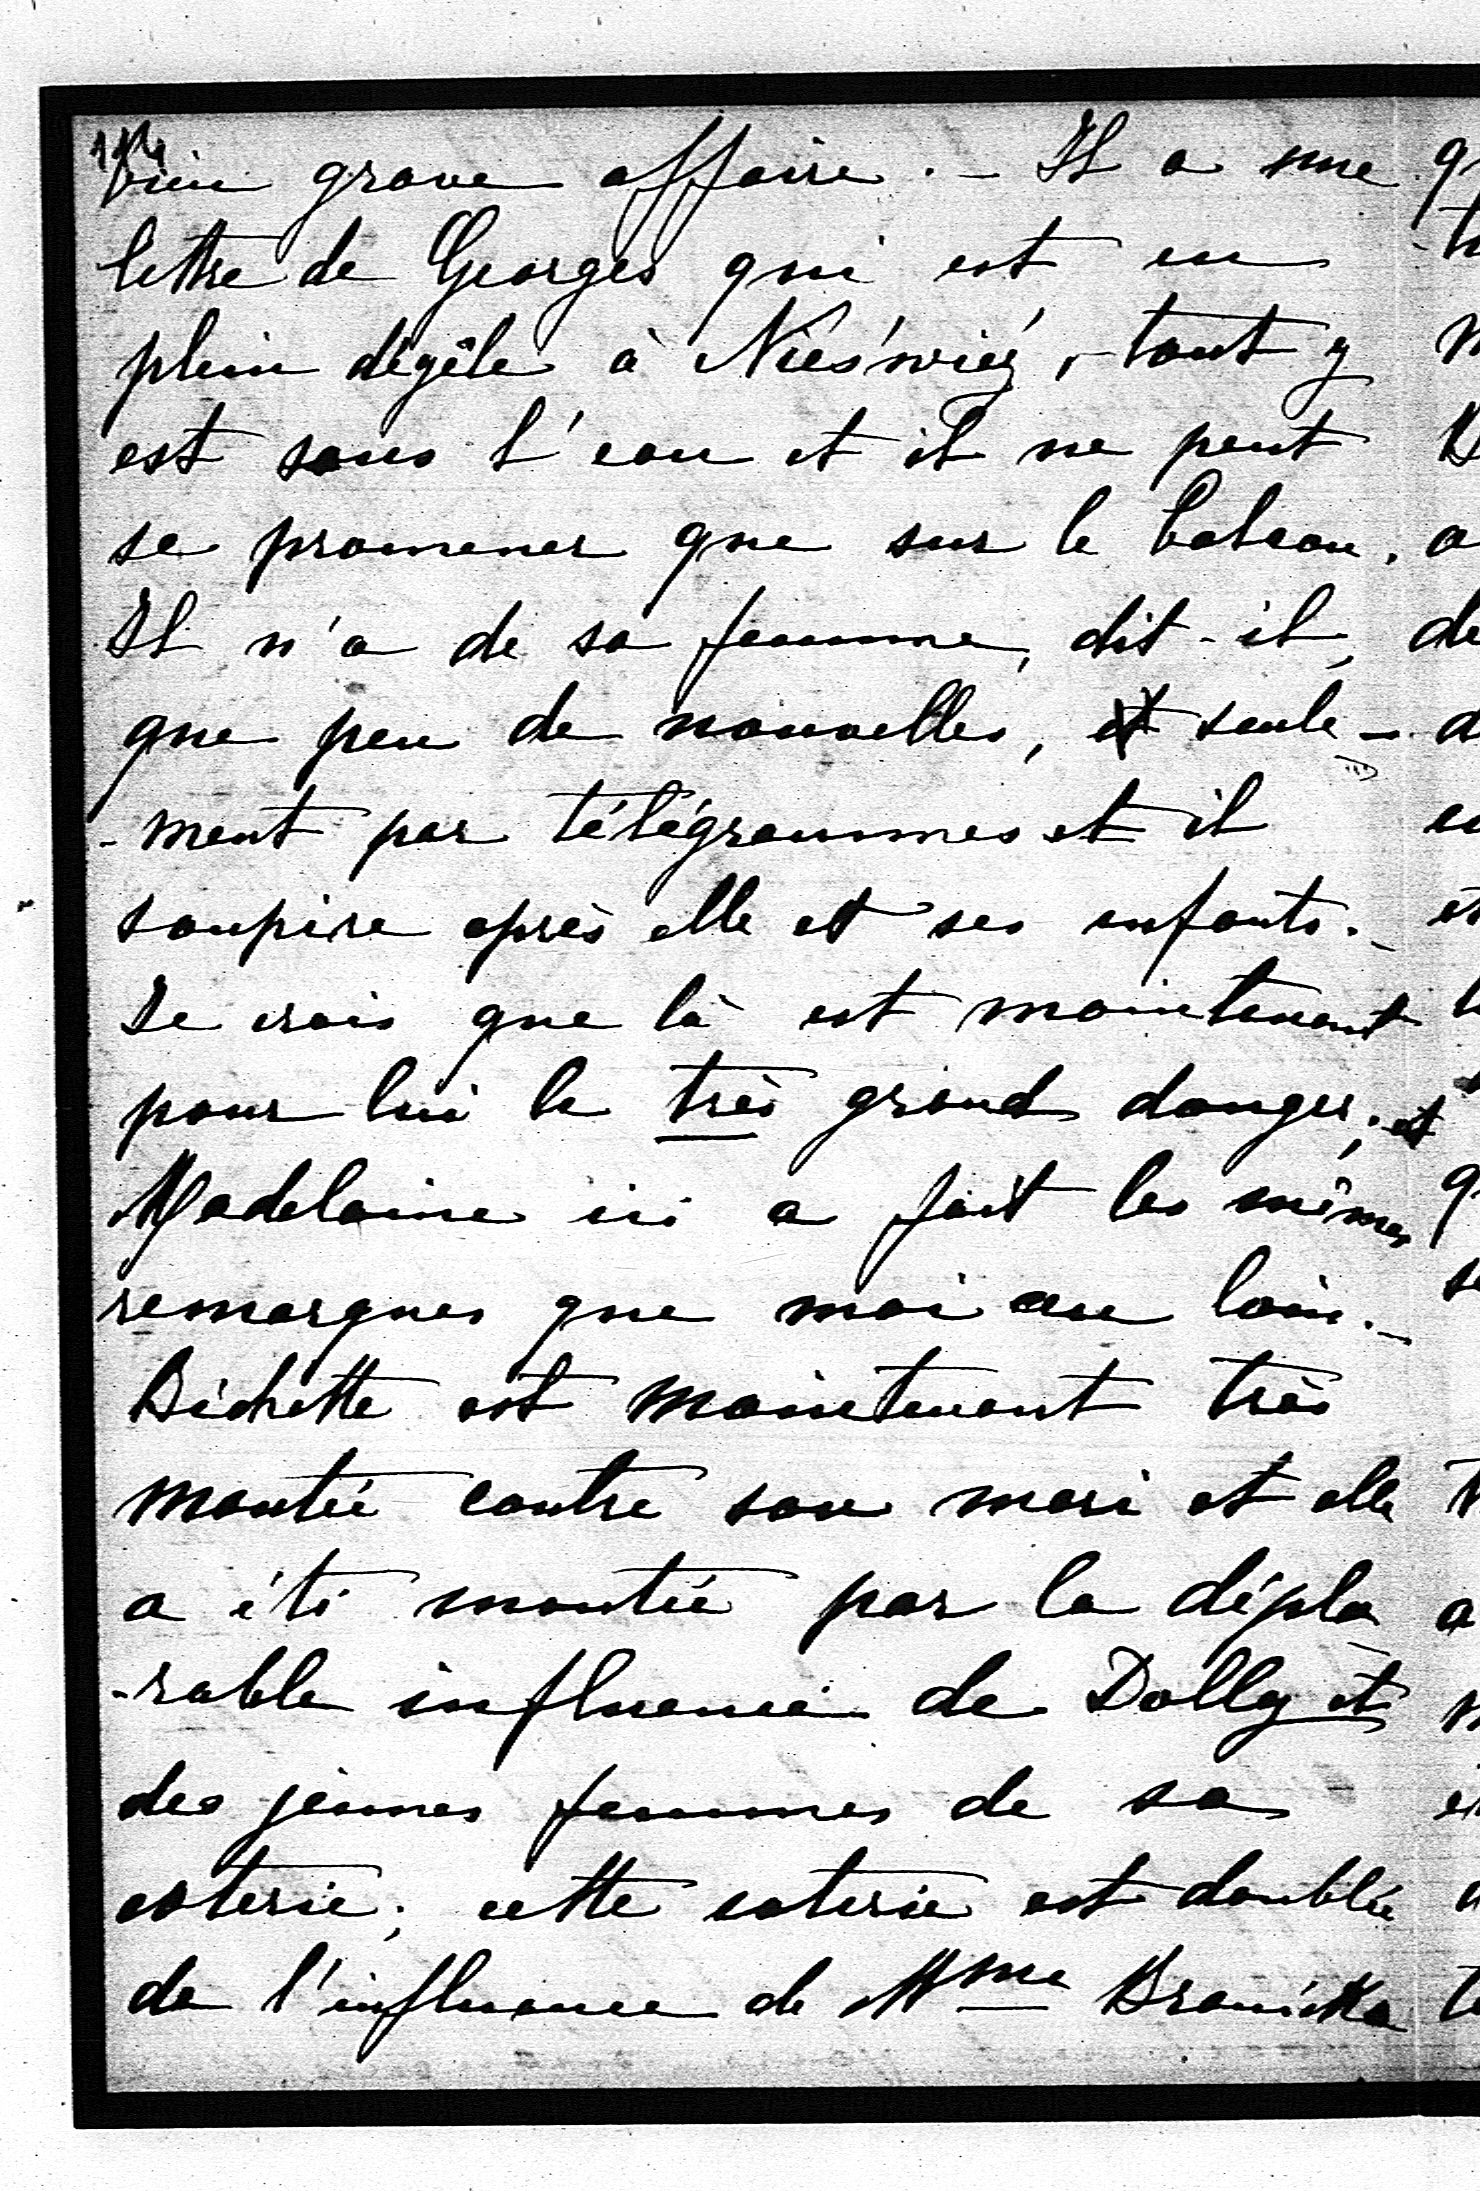 bien grave affaire. – Il a une
lettre de Georges qui est en
plein dégèle à Nieśwież, tout y
est sous l'eau et il ne peut
se promener que sur le balcon.
Il n'a de sa femme, dit-il,
que peu de nouvelles, et seule-
-ment par télégrammes et il
soupire après elle et ses enfants. –
Je crois que là est maintenant
pour lui le très grand danger; et
Madelaine ici a fait les mêmes
remarques que moi au loin. –
Bichette est maintenant très
montée contre son mari et elle
a été montée par la déplo
-rable influence de Dolly et
des jeunes femmes de sa
coterie; cette coterie est doublée
de l'influence de Mme Branicka